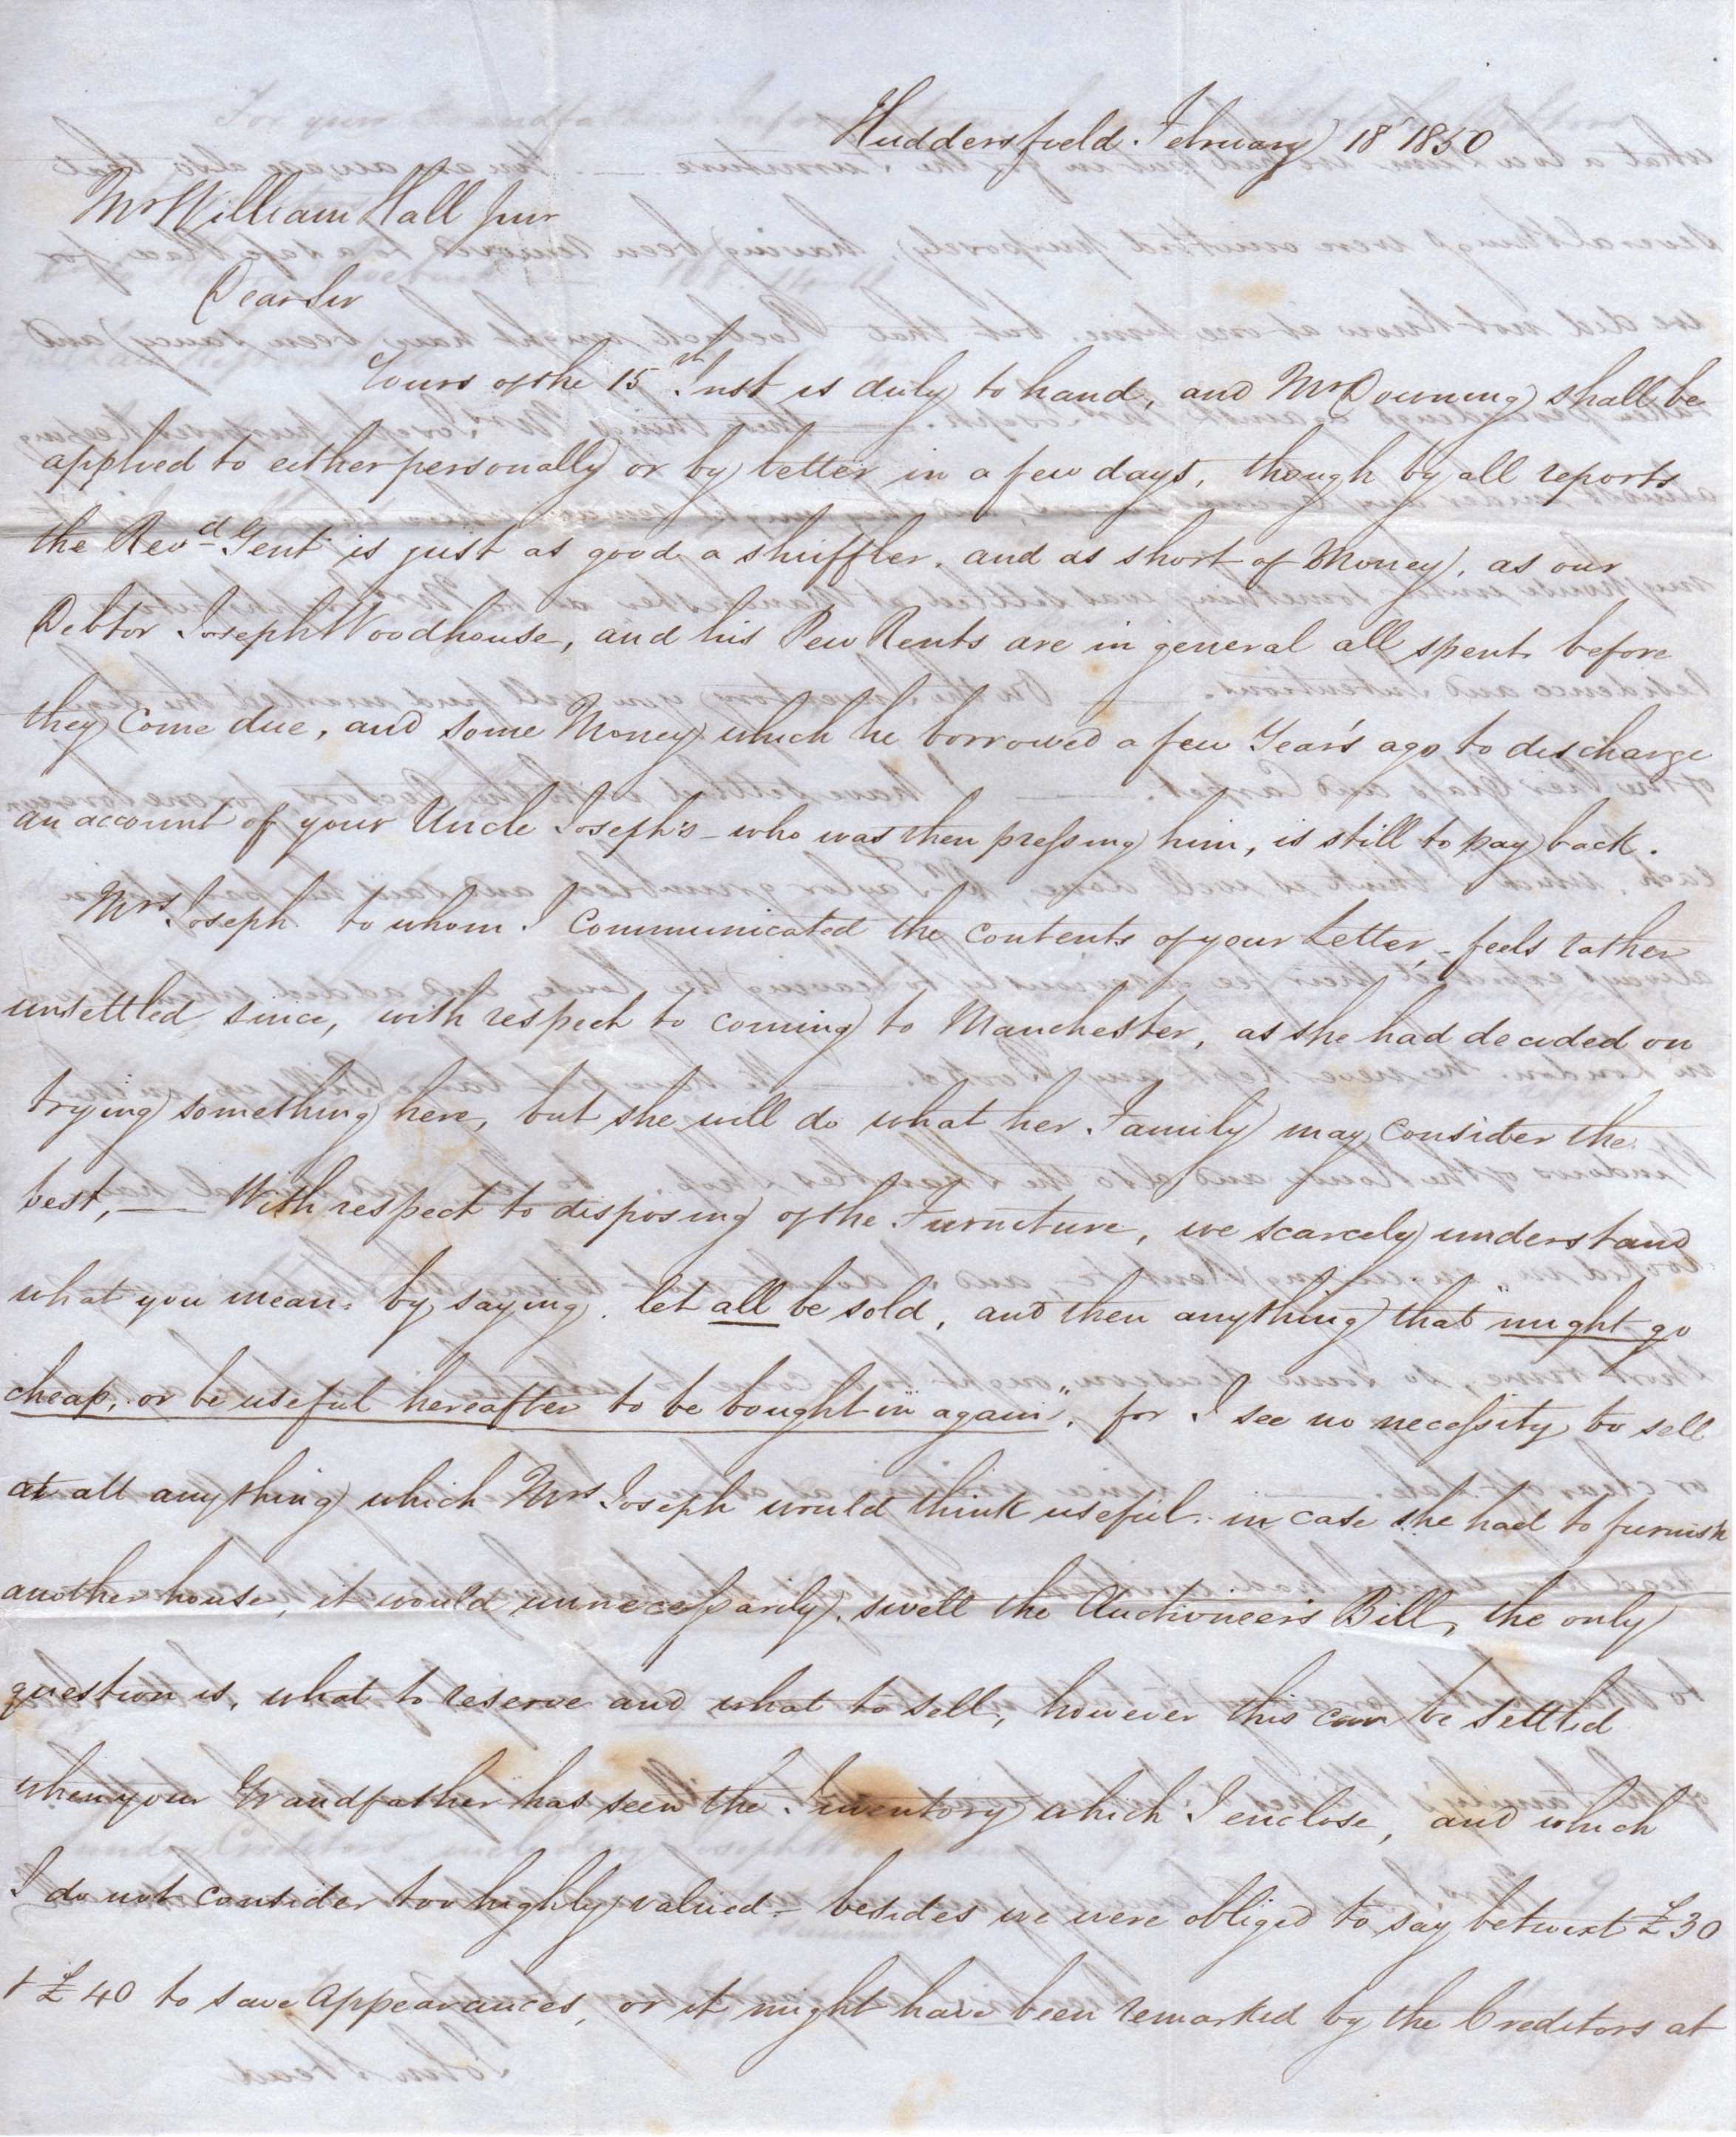 Huddersfield February 18 1850
Mr William Hall Junr
Dear Sir
Yours of the 15th Inst is duly to hand, and Mr Downing shall be
applied to either personally or by letter in a few days, though by all reports
the Revd Gent is just as good a shuffler, and as short of Money, as our
Debtor Joseph Woodhouse, and his Pew Rents are in general all spent before
they Come due, and some Money which he borrowed a few Year's ago to discharge
an account of your Uncle Joseph's - who was then pressing him, is still to pay back.
Mrs Joseph to whom I Communicated the Contents of your Letter, - feels rather
unsettled since, with respect to coming to Manchester, as she had decided on
trying something here, but she will do what her Family may Consider the
best, — With respect to disposing of the Furniture, we scarcely understand
what you mean: by saying. let all be sold, and then anything that "might go
cheap, or be useful hereafter to be bought "in again", for I see no necessity to sell
at all anything which Mrs Joseph would think useful. in Case she had to furnish
another house, it would unnecessarily. swell the Auctioneer's Bill, the only
question is, what to reserve and what to sell, however this can be settled
when your Grandfather has seen the Inventory which I enclose, and which
I do not consider too highly valued - besides we were obliged to say betwixt £30
+ £40 to save Appearances, or it might have been remarked by the Creditors at